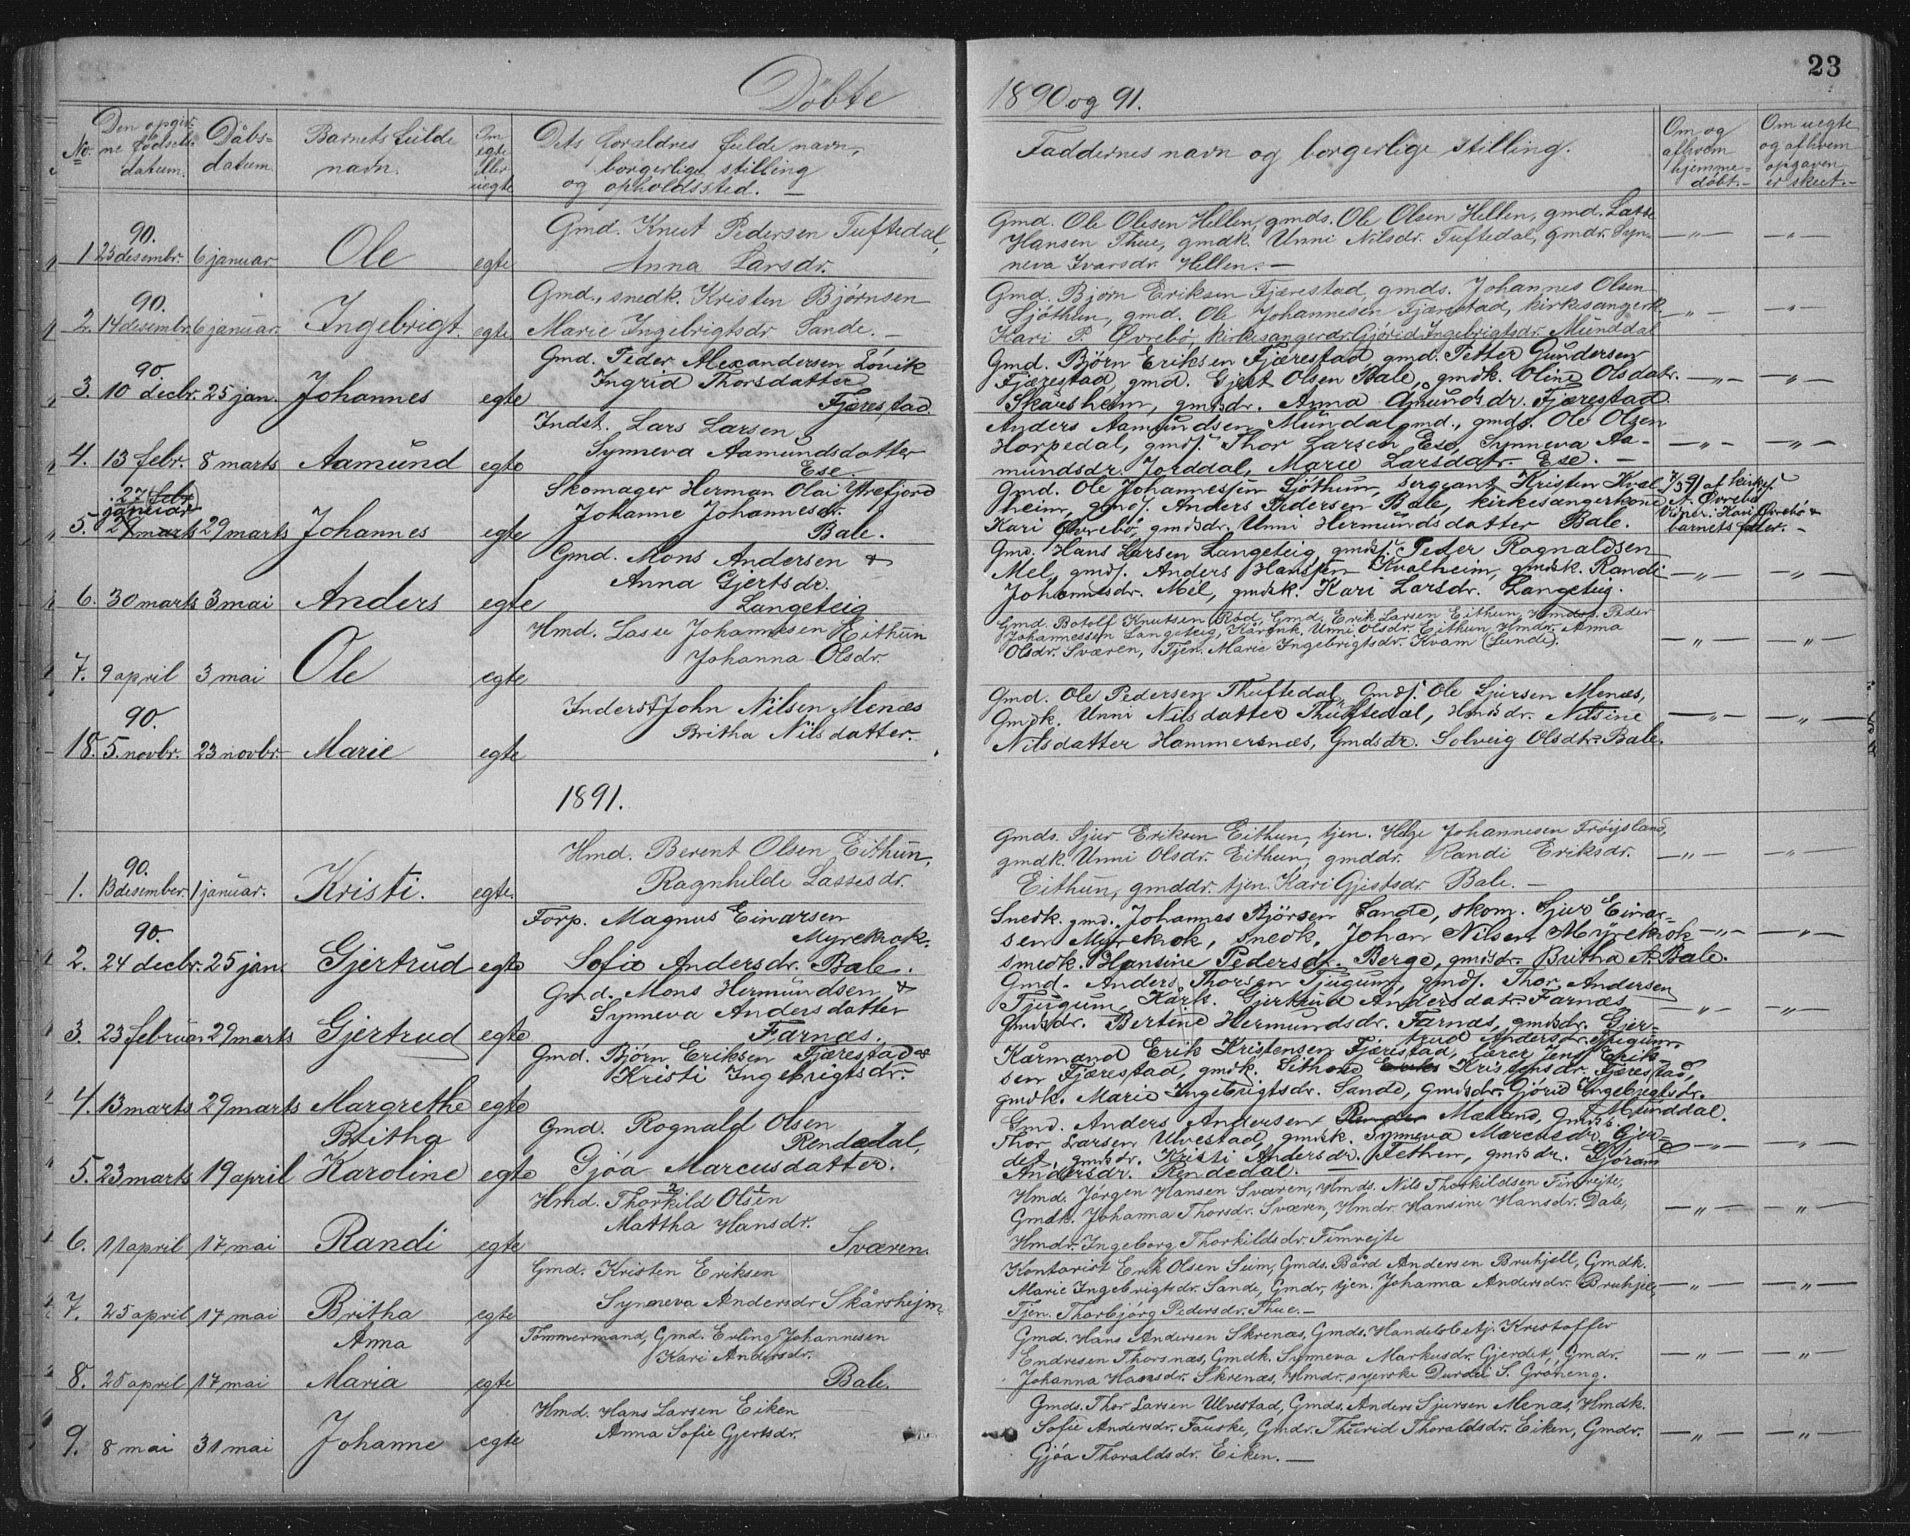 23
Döbte
1890 og 91.
No.
Den opgiv-
ne födsels-
datum.
Dåbs-
datum.
Barnets fulde
navn.
Om
egte
eller
uegte
Dets foraldres fulde navn,
borgerlige stilling
og opholdssted. —
Faddernes navn og borgerlige stilling.
Om og
af hvem
hjemme-
döbt. —
Om uegte
og af hvem
opgaven
er skeet. —
90.
1 25 desembr. 6 januar. Ole egte
Gmd. Knut Pedersen Tuftedal,
Anna Larsdr.
Gmd. Ole Olesen Hellen, gmds. Ole Olsen Hellen, gmd. Lasse
Hansen Thue, gmdk. Unni Nilsdr. Tuftedal, gmdr. Syn-
neva Ivarsdr. Hellen. —
—„— —„—
90.
2. 14 desembr. 6 januar. Ingebrigt. egte
Gmd., snedk. Kristen Bjørnsen
Marie Ingebrigtsdr. Sande. —
Gmd. Bjørn Eriksen Fjærestad, gmds. Johannes Olsen
Sjöthun, gmd. Ole Johannesen Fjærestad, kirkesangerk.
Kari P. Øvrebö, kirkesangerdr. Gjörid Ingebrigtsdr. Munddal
—„— —„—
90.
3. 10 decbr. 25 jan. Johannes egte
Gmd. Peder Alexandersen Lövik
Ingrid Thorsdatter
Fjærestad
Gmd. Björn Eriksen Fjærestad gmd. Petter Gundersen
Fjærestad, gmd. Gjert Olsen Bale, gmdk. Oline Olsdatr.
Skåresheim, gmdsdr. Anna Amundsdr. Fjærestad.
—„— —„—
4. 13 febr. 8 marts Aamund egte
Indst. Lars Larsen
Synneva Aamundsdatter
Ese.
Anders Aamundsen Mundal gmd., gmds. Ole Olsen
Horpedal, gmds. Thor Larsen Ese, Synneva Aa-
mundsdr. Jorddal, Marie Larsdatr. Ese. —
—„— —„—
27 febr
januar
5. 27 marts 29 marts Johannes egte
Skomager Herman Olai Ytrefjord
Johanne Johannesdr.
Bale.
Gmd. Ole Johannessen Sjöthun, sergeant Kristen Kval-
heim, gmds. Anders Pedersen Bale, kirkesangerkone
Kari Øvrebö, gmdsdr. Unni Hermundsdatter Bale.
7/3 91 af kirkes.
A. Øvrebö
Vidner: Kari Øvrebö &
barnets fader. —
6. 30 marts 3 mai Anders egte
Gmd. Mons Andersen &
Anna Gjertsdr.
Langeteig
Gmd. Hans Larsen Langeteig, gmds. Peder Rognaldsen
Mel, gmds. Anders Hanssen Kvalheim, gmdsk. Randi
Johannesdr. Mel, gmdsk. Kari Larsdr. Langeteig.
—„— —„—
7. 9 april 3 mai Ole egte
Hmd. Lasse Johannesen Eithun
Johanna Olsdr.
Gmd. Botolf Knutsen Röd, Gmd. Erik Larsen Eithun, Hmds. Peder
Johannessen Langeteig, Kårmk. Unni Olsdr. Eithun, Hmdr. Anna
Olsdr. Sværen, Tjen. Marie Ingebrigtsdr. Kvam (Lunde).
„ —„—
90.
18. 5. novbr. 23 novbr. Marie egte
Inderst John Nilsen Menæs
Britha Nilsdatter.
Gmd. Ole Pedersen Thuftedal, Gmds. Ole Sjursen Menæs,
Gmdk. Unni Nilsdatter Thuftedal, Hmdsdr. Nilsine
Nilsdatter Hammersnæs, Gmdsdr. Solveig Olsdtr. Bale.
—„— —„—
1891.
90.
1. 13 desember. 1 januar. Kristi. egte.
Hmd. Berent Olsen Eithun,
Ragnhilde Lassesdr.
Gmds. Sjur Eriksen Eithun, tjen. Helge Johannesen Fröjsland,
gmdk. Unni Olsdr. Eithun, gmddr. Randi Eriksdr.
Eithun, gmddr. tjen. Kari Gjertsdr. Bale. —
—„— —„—
90.
2. 24 decbr. 25 jan. Gjertrud egte
Forp. Magnus Einarsen
Myrekrok.
Sofie Andersdr. Bale.
Snedk. gmd. Johannes Björsen Sande, skom. Sjur Einar-
sen Myrekrok, snedk. Johan Nilsen Myrekrok
smedk. Hansine Pedersdr. Berge, gmdsdr. Britha A. Bale.
—„— —„—
3. 23 februar 29 marts Gjertrud egte
Gmd. Mons Hermundsen &
Synneva Andersdatter
Farnæs.
Gmd. Anders Thorsen Tjugum, gmds. Thor Andersen
Tjugum, Kårk. Gjertrud Andersdatr. Farnæs
Gmdsdr. Bertine Hermundsdr. Farnæs, gmdsdr. Gjer-
trud Andersdr. Tjugum.
—„— —„—
4. 13 marts 29 marts Margrethe egte
Gmd. Bjørn Eriksen Fjærestad &
Kristi Ingebrigtsdr.
Kårmand Erik Kristensen Fjærestad, lærer Jens Erik-
sen Fjærestad, gmdk. Sithone Eriks Kristensdr. Fjærestad,
gmdk. Marie Ingebrigtsdr. Sande, Gmdsdr. Gjörid Ingebrigtsdr.
Munddal.
Britha
5. 23 marts 19 april Karoline egte
Gmd. Rognald Olsen
Rendedal,
Gjøa Marcusdatter.
Gmd. Anders Andersen Mæland, Gmds.
Thor Larsen Ulvestad, gmdsk. Synneva Marcusdr. Gjer-
det, gmdsdr. Kristi Andersdr. Fethen, gmdsdr. Gjöran
Andersdr. Rendedal. —
—„— —„—
6. 11 april 17 mai Randi egte
Hmd. Thorkild Olsen
Mattha Hansdr.
Sværen.
Hmd. Jörgen Hansen Sværen, Hmds. Nils Thorkildsen Fimreite,
Gmdk. Johanna Thorsdr. Sværen, Hmdr. Hansine Hansdr. Dale,
Hmdr. Ingeborg Thorkildsdr. Fimreite
—„— —„—
7. 25 april 17 mai Britha egte
Gmd. Kristen Eriksen
Synneva Andersdr. Skårshejm.
Kontorist Erik Olsen Sum, Gmds. Bård Andersen Bruhjell, Gmdk.
Marie Ingebrigtsdr. Sande, Gmdr, tjen. Johanna Andersdr. Bruhjell,
Tjen. Thorbjörg Pedersdr. Thue. —
—„— —„—
Anna
8. 25 april 17 mai Maria egte
Tömmermand, Gmd. Erling Johannesen
Kari Andersdr.
Bale.
Gmd. Hans Andersen Skrenæs, Gmds. Handelsbetj. Kristoffer
Endresen Thorsnæs, Gmdk. Synneva Markusdr. Gjerdet, Gmdr.
Johanna Hansdr. Skrenæs, Hmdr. syerske Durdei S. Gröneng.
—„— —„—
9. 8 mai 31 mai Johanne egte
Hmd. Hans Larsen Eiken
Anna Sofie Gjertsdr.
Gmds. Thor Larsen Ulvestad, Gmds. Anders Sjursen Menæs, Hmdk.
Sofie Andersdr. Fauske, Gmdr. Thurid Thoraldsdr. Eiken, Gmdr.
Gjøa Thoraldsdr. Eiken. —
—„— —„—